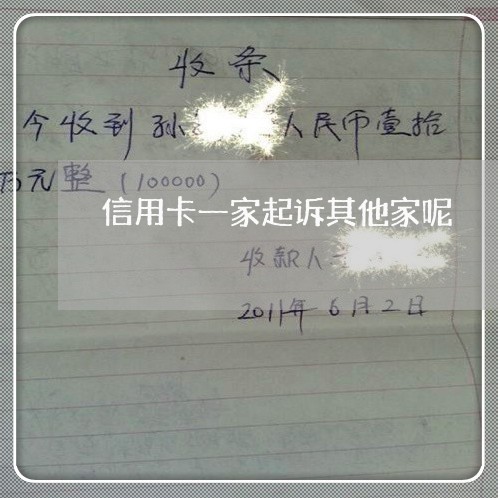 收条
今收到孙 人民币壹拾
万元整（100000）
信用卡一家起诉其他家呢
收款人
2011年6月2日